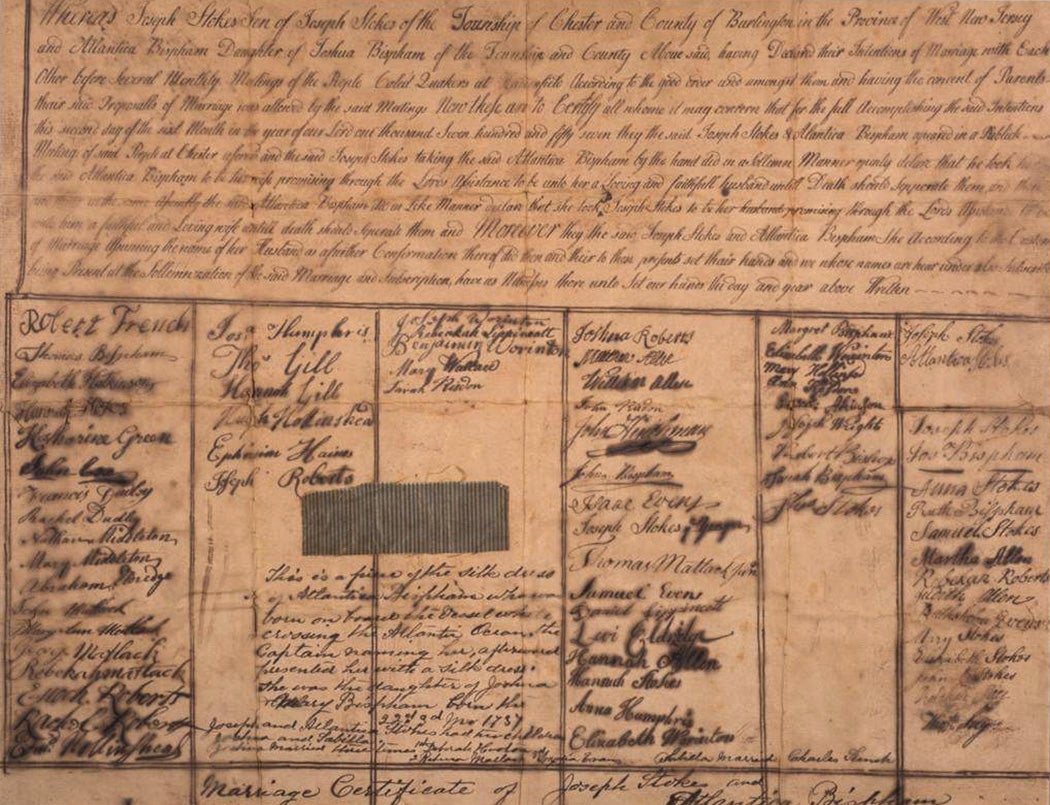 Whereas Joseph Stokes Son of Joseph Stokes of the Township of Chester and County of Burlington in the Province of West New Jersey
and Atlantica Bispham Daughter of Joshua Bispham of the Township and County Above said, having Declared their Intentions of Marriage with Each
Other before Several Monthly Meetings of the People Called Quakers at According to the good order used amongst them and having the concent of Parents
their said Proposalls of Marriage was allowed by the said Meetings Now these are to Certify all whome it may concern that for the full Accomplishing the said Intentions
this second day of the sixt Month in the year of our Lord one thousand Seven hundred and fifty seven they the said Joseph Stokes & Atlantica Bispham appeared in a Publick
Meeting of said People at Chester aforesd and the said Joseph Stokes taking the said Atlantica Bispham by the hand did in a Sollemn Manner openly declare that he took
the said Atlantica Bispham to be his wife promising through the Lords Assistance to be unto her a Loving and faithfull husband untill Death should Separate them and then
in the same assembly the said Atlantica Bispham did in Like Manner declare that she took Joseph Stokes to be her husband promising through the Lords Assistance to be
unto him a faithful and Loving wife untill death should separate them and Moreover they the said Joseph Stokes and Atlantica Bispham She According to the Custom
of Marriage Assuming the name of her Husband as a further Confirmation thereof did then and their to these presents set their hands and we whose names are hear under also Subscribed
being Present at the Sollemnization of the said Marriage and Subscription, have as Witnesses there unto Set our hands the day and year above Written
Robert French
Thomas Bispham
Elizabeth
Stokes
Katharine Green
John Cox
Francis Dudley
Rachel Dudley
Nathan Middleton
Mary Middleton
Abraham
John Matlack
Mary Ann Matlack
George Matlack
Rebekah Matlack
Enoch Roberts
Rachel Roberts
Hollingshead
Josa Humphris
Tho Gill
Hannah Gill
Hollinshead
Ephraim Haines
Joseph Roberts
Joseph Worinton
Rebekah Lippincott
Benjamin Worinton
Mary Wallace
Sarah Risdon
This is a piece of the silk dress
of Atlantica Bispham who was
born on board the vessel while
crossing the Atlantic Ocean, the
Captain naming her, afterward
presented her with a silk dress.
She was the daughter of Joshua
& Mary Bispham born the
22nd 3d Mo 1737
Joseph and Atlantica Stokes had two children
Joshua and Tabitha
Joshua married three times
Joshua Roberts
Allen
William Allen
John Risdon
John Hinchman
John Bispham
Isaac Evens
Joseph Stokes,
Thomas Matlack Jun
Samuel Evens
Daniel Lippincott
Levi Eldridge
Hannah Allen
Hannah Stokes
Anna Humphris
Elizabeth Worinton
Married Charles French
Margret Bispham
Elizabeth Worinton
Mary
Joseph Wright
Robert Bishop
Sarah Bispham
Stokes
Joseph Stokes
Atlantica Stokes
Joseph Stokes
Jos Bispham
Anna Stokes
Ruth Bispham
Samuel Stokes
Martha Allen
Roberts
Judith Allen
Evens
Amy Stokes
Elizabeth Stokes
Stokes
Marriage Certificate of Joseph Stokes and
Atlantica Bispham